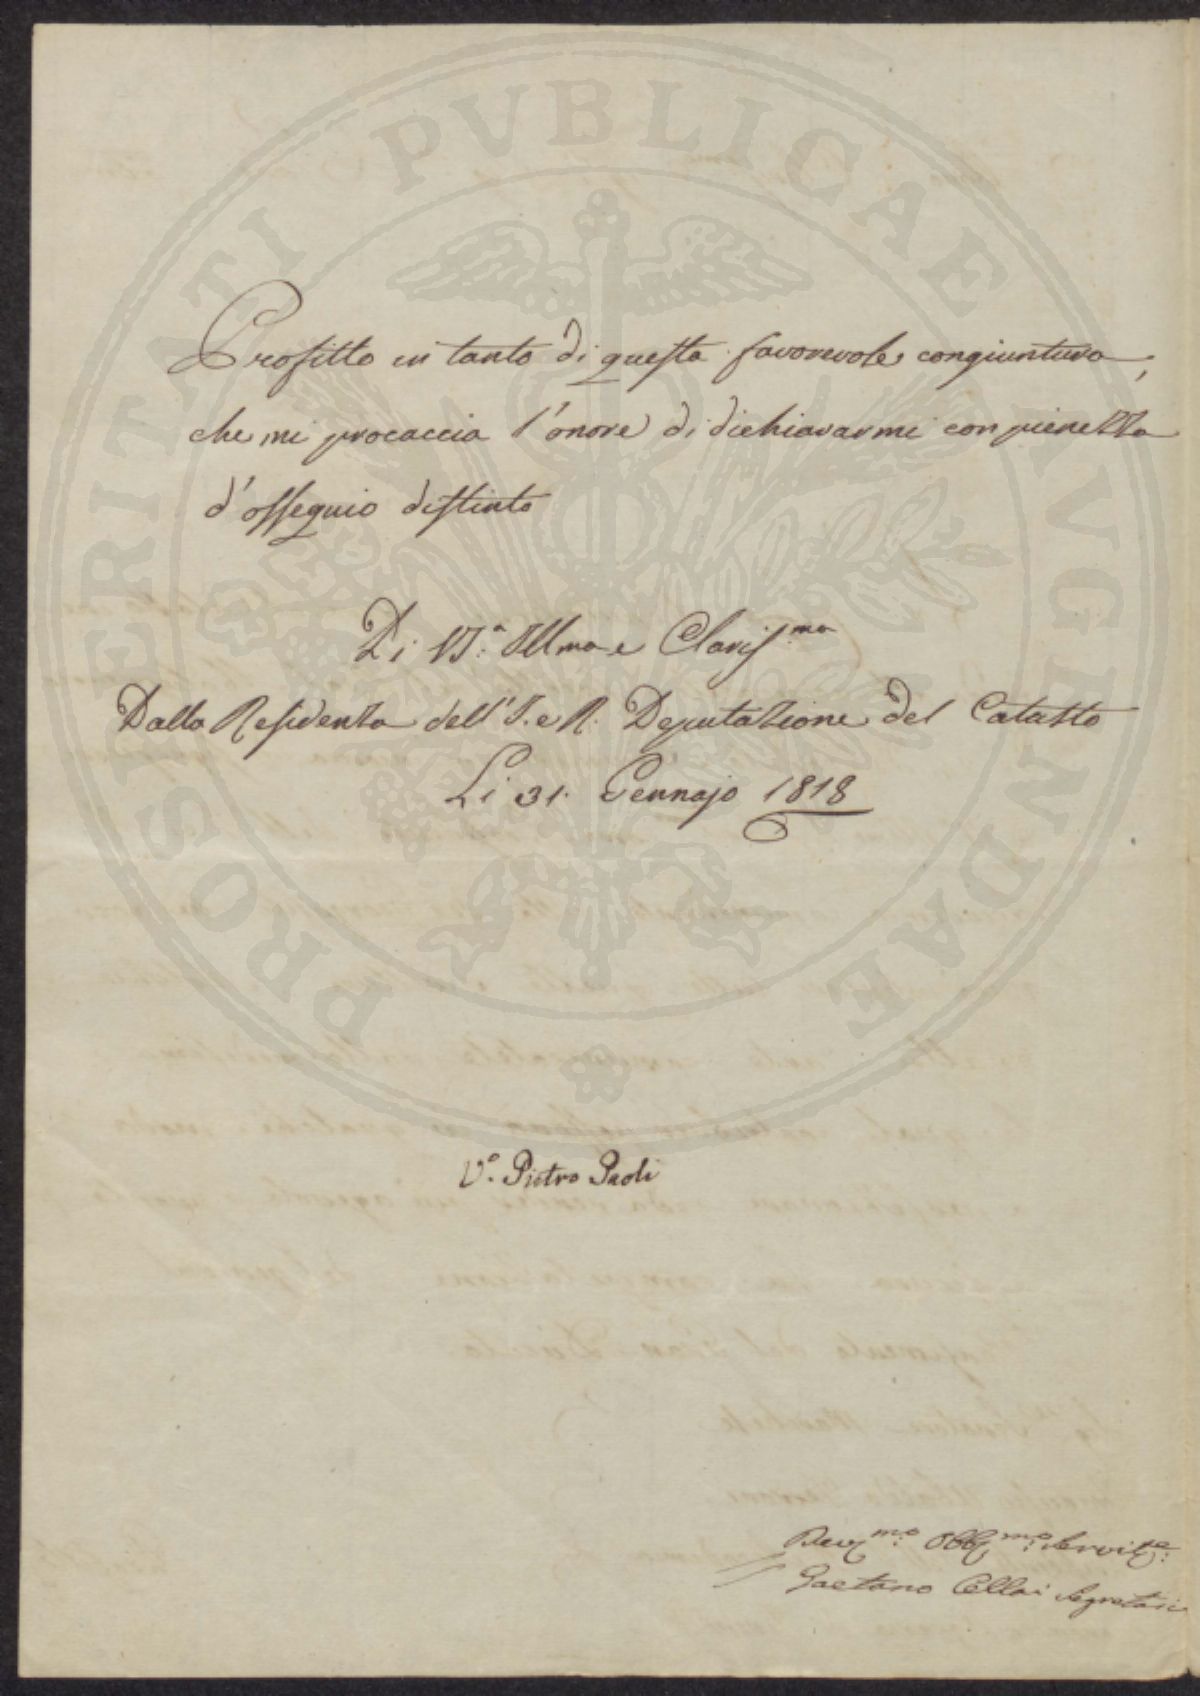 PROSPERITATI PVBLICAE AVGENDAE
Profitto in tanto di questa favorevole congiuntura,
che mi procaccia l'onore di dichiararmi con pienezza
d'ossequio distinto
Di VS.a Illma e Clariss.ma
Dalla Residenza dell'I. e R. Deputazione del Catasto
Li 31. Gennajo 1818
V.o Pietro Paoli
Dev.mo Obb.mo Servit.e
Gaetano Cellai Segretari